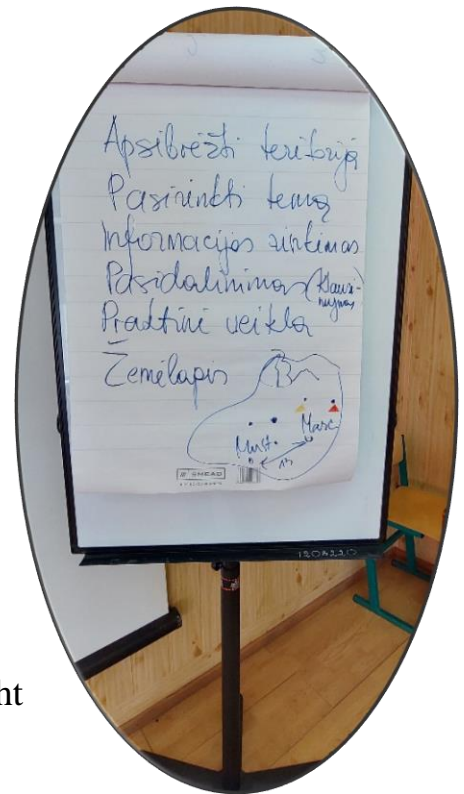 Apsibrėžti teritoriją
Pasirinkti temą
Informacijos rinkimas
Pasidalinimas (Klausi-
nymas)
Praktinė veikla
Žemėlapis
Marc.
Must.
13
SMEAD
120x220
ht